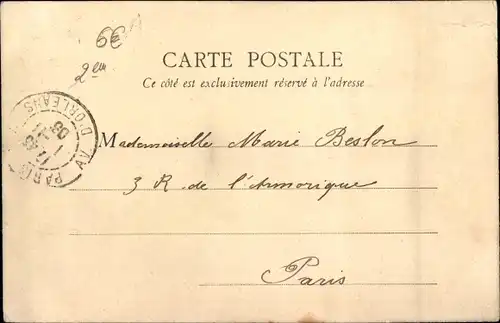 6€
2em
CARTE POSTALE
Ce côté est exclusivement réservé à l'adresse
PARIS AV. D'ORLÉANS
Mademoiselle Marie Beslon
3 R. de l'Armorique
Paris